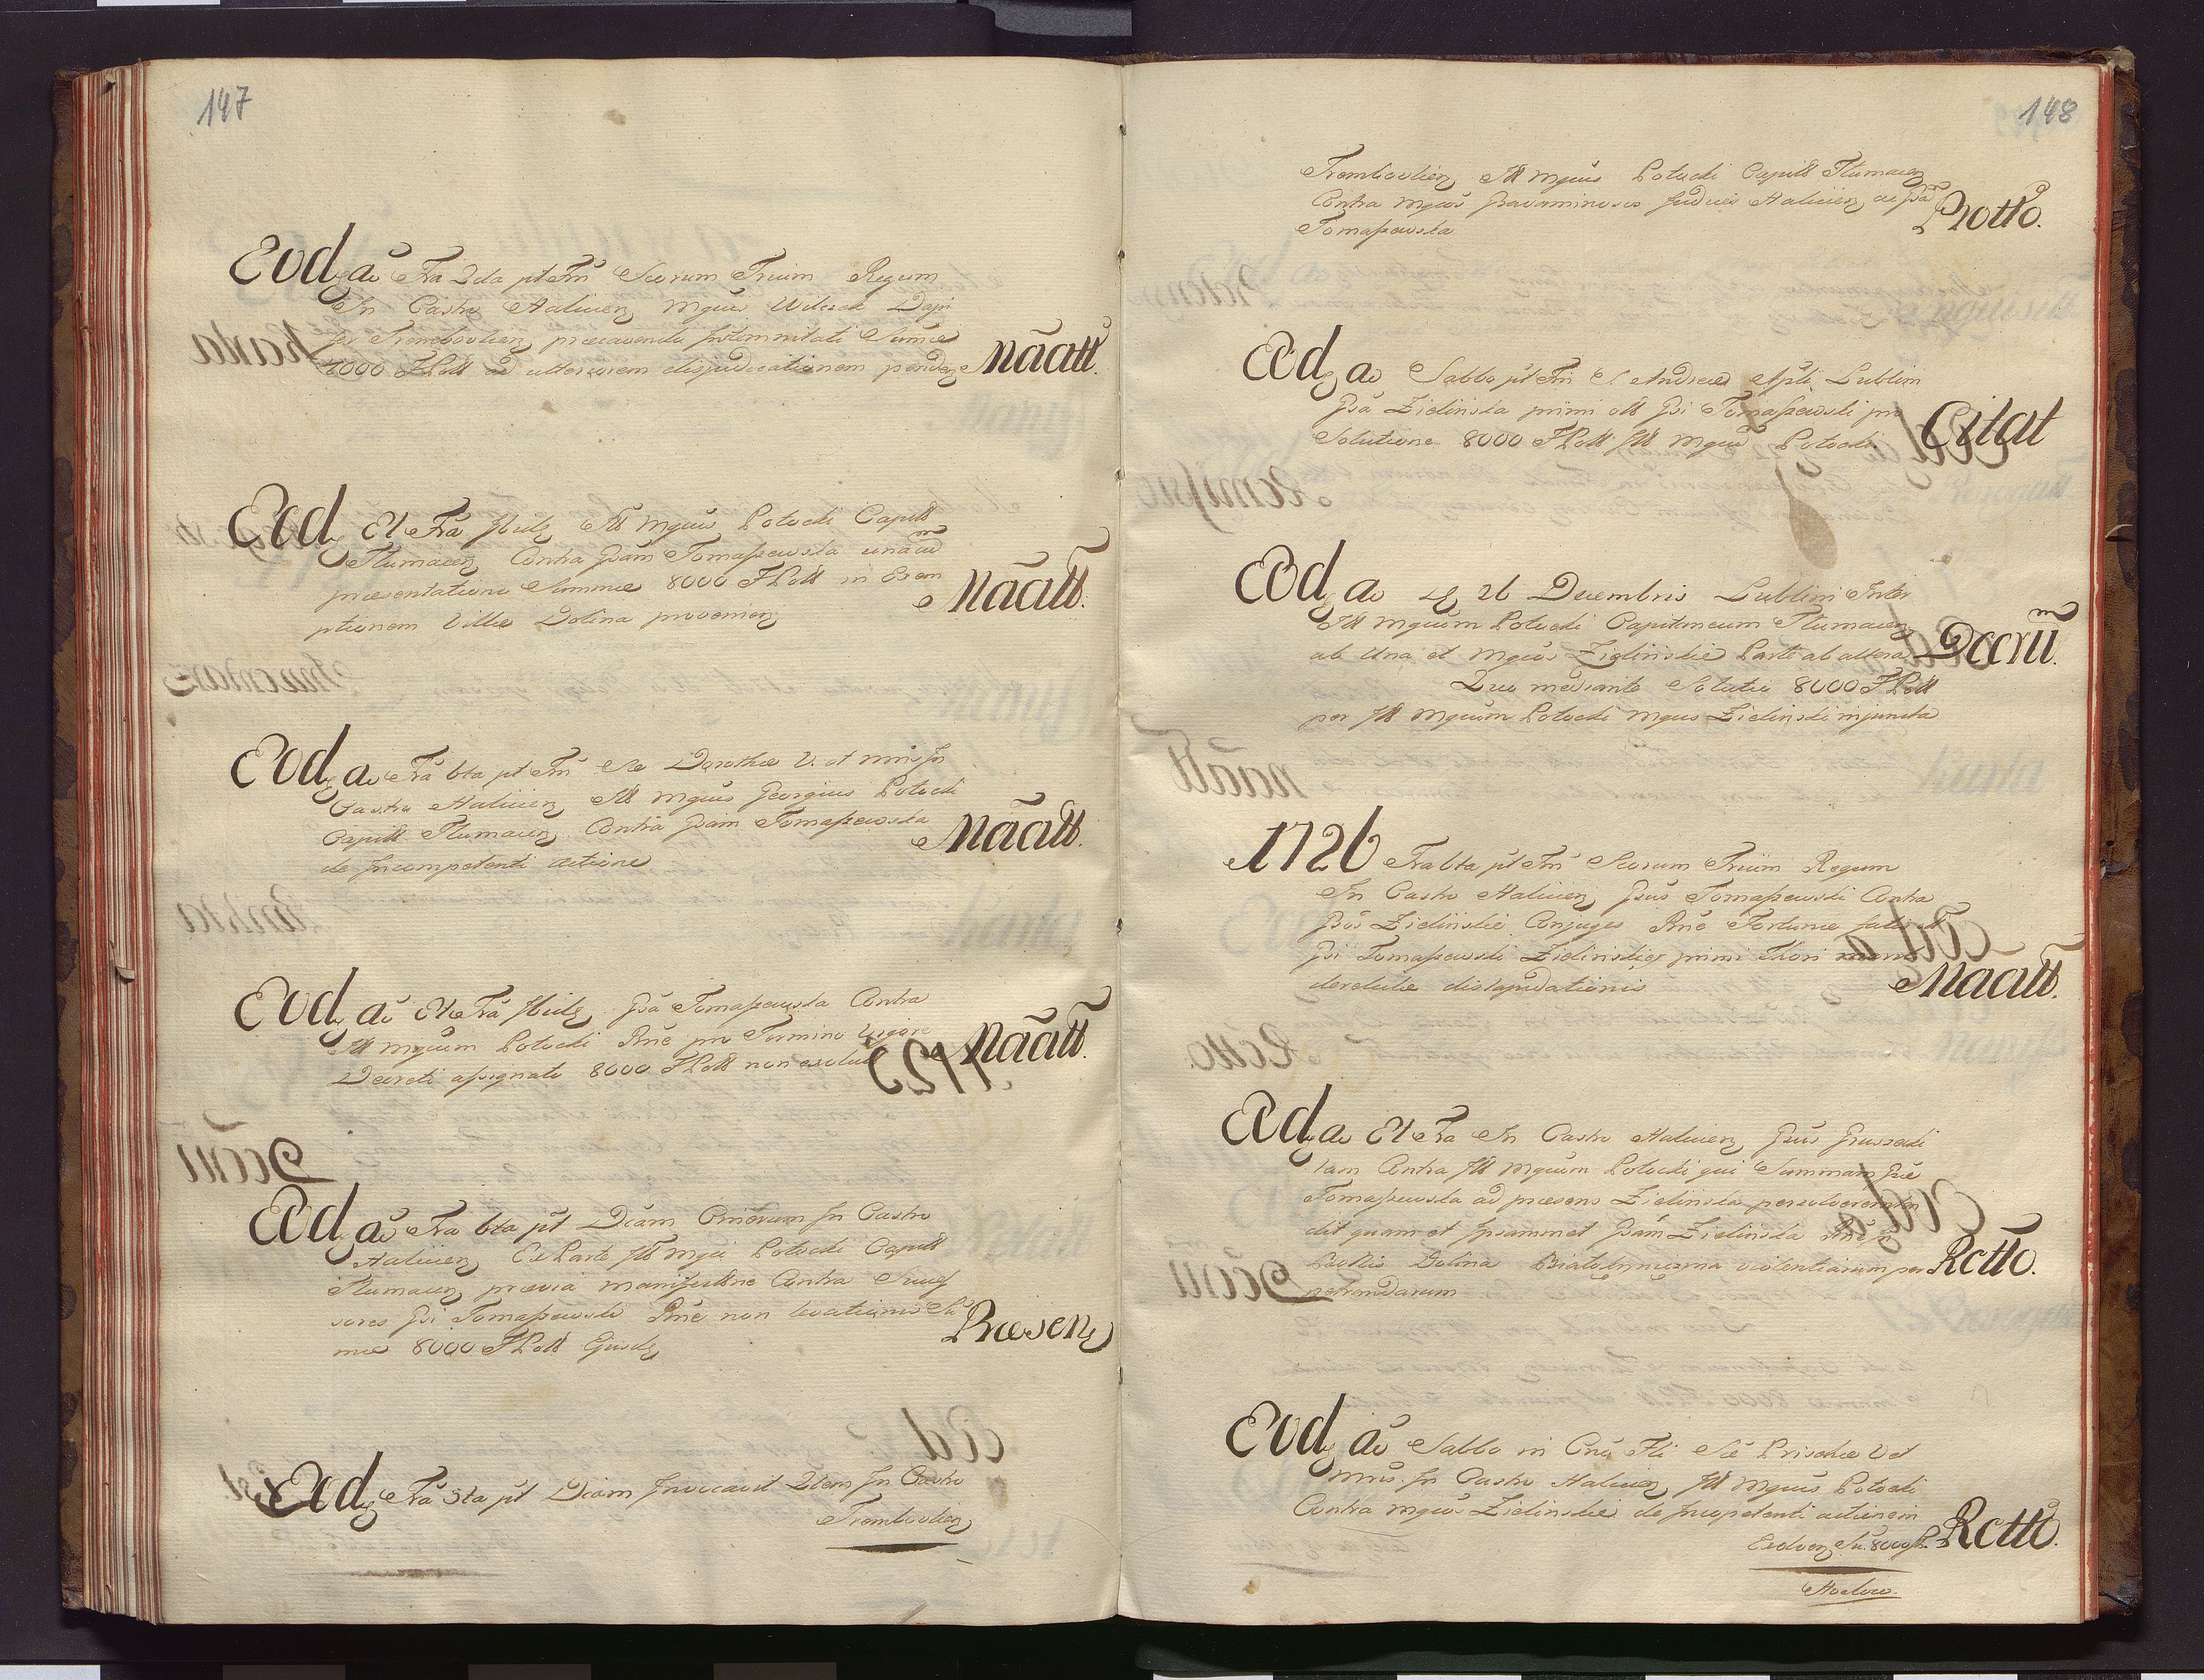 147
Eodg aõ Fra 2da pt Fm Scorum Trium Regum
In Castro Halicieñ Mgcus Wilczek Dapi
fer Trembovlieñ præcavendo Indemnitati Summæ
1000 FPoll ad ulteriorem disjudicationem pendeñ Maãtt.
Eodg Et Fra Ibidg Ill Mgcus Potocki Capitt
Tlumaceñ Contra Gsam Tomaszewska unã cũ
præsentatione Summæ 8000 FPoll in Exem
ptionem Villæ Dolina provenieñ Maãtt.
Eodg aõ Fra 6ta pt Fm Stæ Dorotheæ V. et mris In
Castro Halicieñ Ill Mgcus Georgius Potocki
Capitt Tlumaceñ Contra Gsam Tomaszewska
de Incompetenti actione Maãtt.
Eodg aõ Et Fra Ibidg Gsa Tomaszewska Contra
Ill Mgcum Potocki Rñe pro Termino Vigore
Decreti assignato 8000 FPoll non exolut Maãtt.
Eodg aõ Fra 6ta pt Diam Cinerum In Castro
Halicieñ Ex Parte Ill Mgci Potocki Capitt
Tlumaceñ prævia manifestñe Contra Succes
sores Gsi Tomaszewski Rñe non levationis Su
mæ 8000 FPoll Ejusdg Præseng
Eodg Fra 5ta pt Diam Invocavit Idem In Castro
Trembovlieñ
148
Trembovlieñ Ill Mgcus Potocki Capitt Tlumaceñ
Contra Mgcos Gravaminosos Judices Haliciens ac Gsam
Tomaszewska Protto.
Eodg aõ Sabbo pt Fm S Andreæ Apli Lublini
Gsa Zielinska primi olt Gsi Tomaszewski pro
Solutione 8000 FPoll Ill Mgcum Potocki Citat
Eodg aõ 26 Decembris Lublini Inter
Ill Mgcum Potocki Capitaneum Tlumaceñ
ab Una et Mgcos Zielinskie Parte ab altera Dccrũ.
Quo mediante Solutio 8000 FPoll
per Ill Mgcum Potocki Mgcus Zielinski injuncta
1726 Fra 6ta pt Fm Scorum Trium Regum
In Castro Haliciens Gsus Tomaszewski Contra
Gsos Zielinskie Conjuges Rñe Fortunæ
Gsi Tomaszewski Zielinskiey primi Thori
derelictæ dislapidationis Maãtt.
Eodg aõ Et Fra In Castro Haliciens Gsus Gruszecki
tam Contra Ill Mgcum Potocki qui Summam Gsæ
Tomaszewska ad præsens Zielinska
dit quam et Ipsammet Gsam Zielinska Rñe in
Dolina violentiarum per Rctto.
petrandarum
Eodg aõ Sabbo in Crõ Fti Stæ Priscæ V et
mris In Castro Haliciens Ill Mgcus Potocki
Contra Mgcos Zielinskie de Incopetenti actionem
Exolveñ Su. 8000 fP. Rctto.